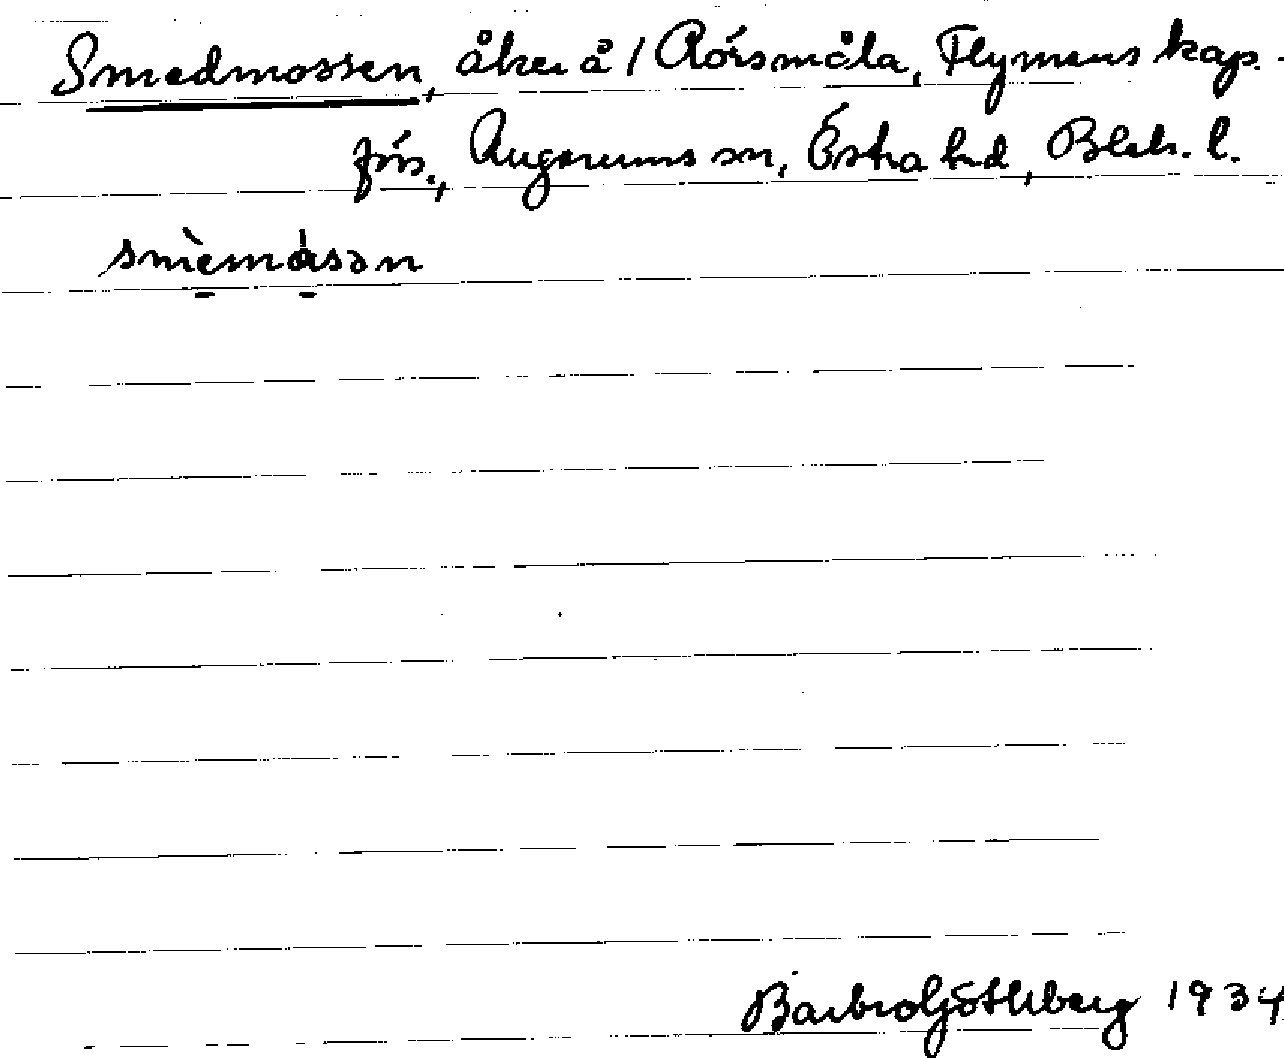 Smedmossen, åker å 1 Rörsmåla, Flymens kap.
förs., Augerums sn, Östra hd, Blek. l.
smèmåsən
Barbro Göthberg 1934